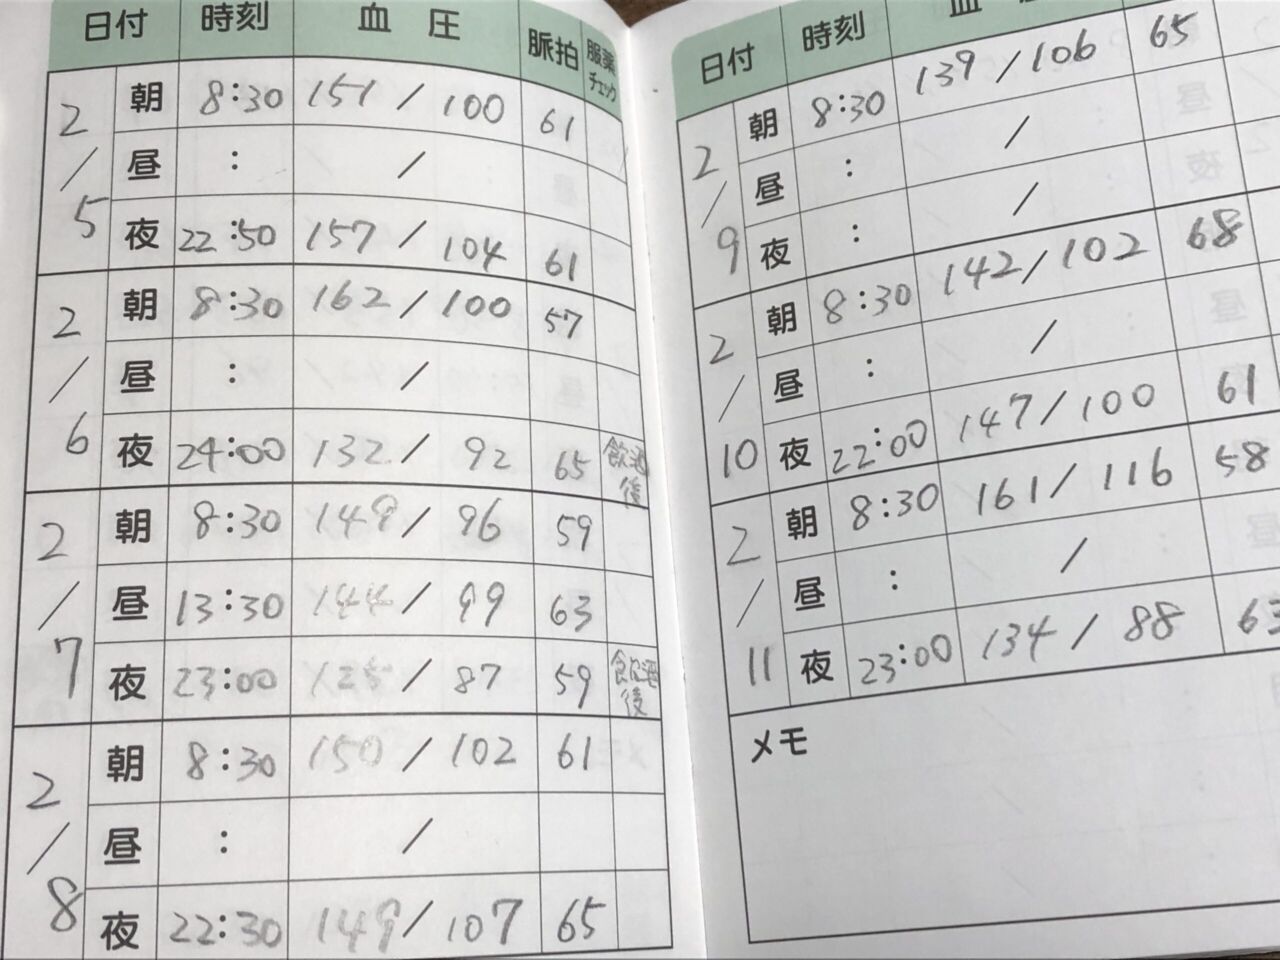 日付 時刻 血圧 脈拍 服薬チェック
2/5 朝 8:30 151/100 61
昼 : /
夜 22:50 157/104 61
2/6 朝 8:30 162/100 57
昼 : /
夜 24:00 132/92 65 飲酒後
2/7 朝 8:30 149/96 59
昼 13:30 144/99 63
夜 23:00 125/87 59 飲酒後
2/8 朝 8:30 150/102 61
昼 : /
夜 22:30 149/107 65
日付 時刻 血圧
2/9 朝 8:30 139/106 65
昼 : /
夜 : /
2/10 朝 8:30 142/102 68
昼 : /
夜 22:00 147/100 61
2/11 朝 8:30 161/116 58
昼 : /
夜 23:00 134/88 63
メモ